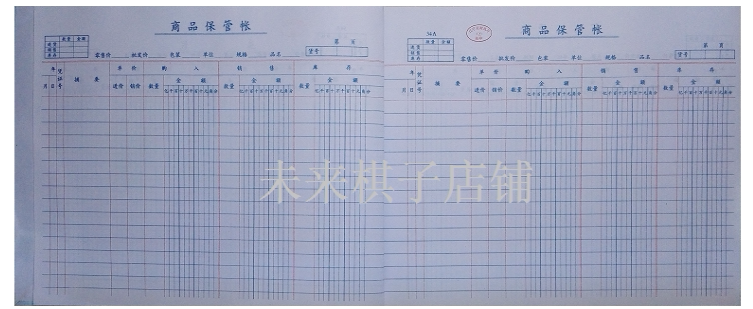 商品保管帐
数量 金额
第 页
货号
零售价 批发价 包装 单位 规格 品名
年 凭证号 摘要 单价 购入 销售 库存
月 日 进价 销价 数量 金额 数量 金额 数量 金额
34A
商品保管帐
数量 金额
第 页
货号
零售价 批发价 包装 单位 规格 品名
年 凭证号 摘要 单价 购入 销售 库存
月 日 进价 销价 数量 金额 数量 金额 数量 金额
未来棋子店铺